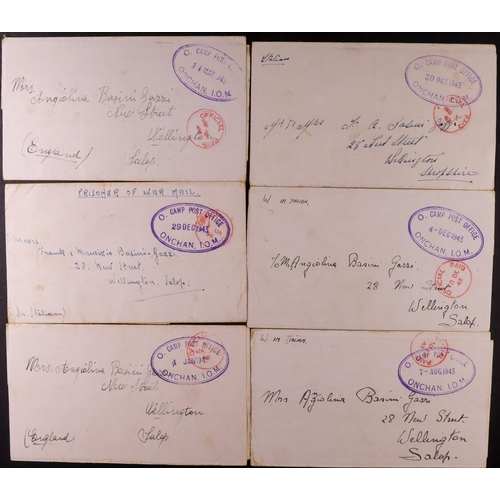 O. CAMP POST
MAY 194
ONCHAN, I.O.M.
OFFICIAL PAID
Mrs. Angiolina Basini Gazzi
New Street
Wellington
(England) Salop.
Italian
O. CAMP POST OFFICE
30 OCT 1943
ONCHAN, I.O.M.
PAID
Mr & Mrs
Wellington
Shropshire
PRISONER OF WAR MAIL.
O. CAMP POST OFFICE
29 DEC 1943
ONCHAN, I.O.M.
Frank & Maurizio Basini-Gazzi
28. New Street.
Wellington, Salop.
In Italian
W IN ITALIAN.
O. CAMP POST OFFICE
4-DEC 1943
ONCHAN, I.O.M.
OFFICIAL PAID
To Mr. Angiolina Basini Gazzi.
28 New Street
Wellington
Salop.
O. CAMP POST OFFICE
JAN 194
ONCHAN, I.O.M.
Mrs. Angiolina Basini
New Street
Wellington
(England) Salop
W IN ITALIAN.
CAMP POST
7-AUG 1943
ONCHAN, I.O.M.
Mrs Agiolina Basini Gazzi
28 New Street.
Wellington
Salop.